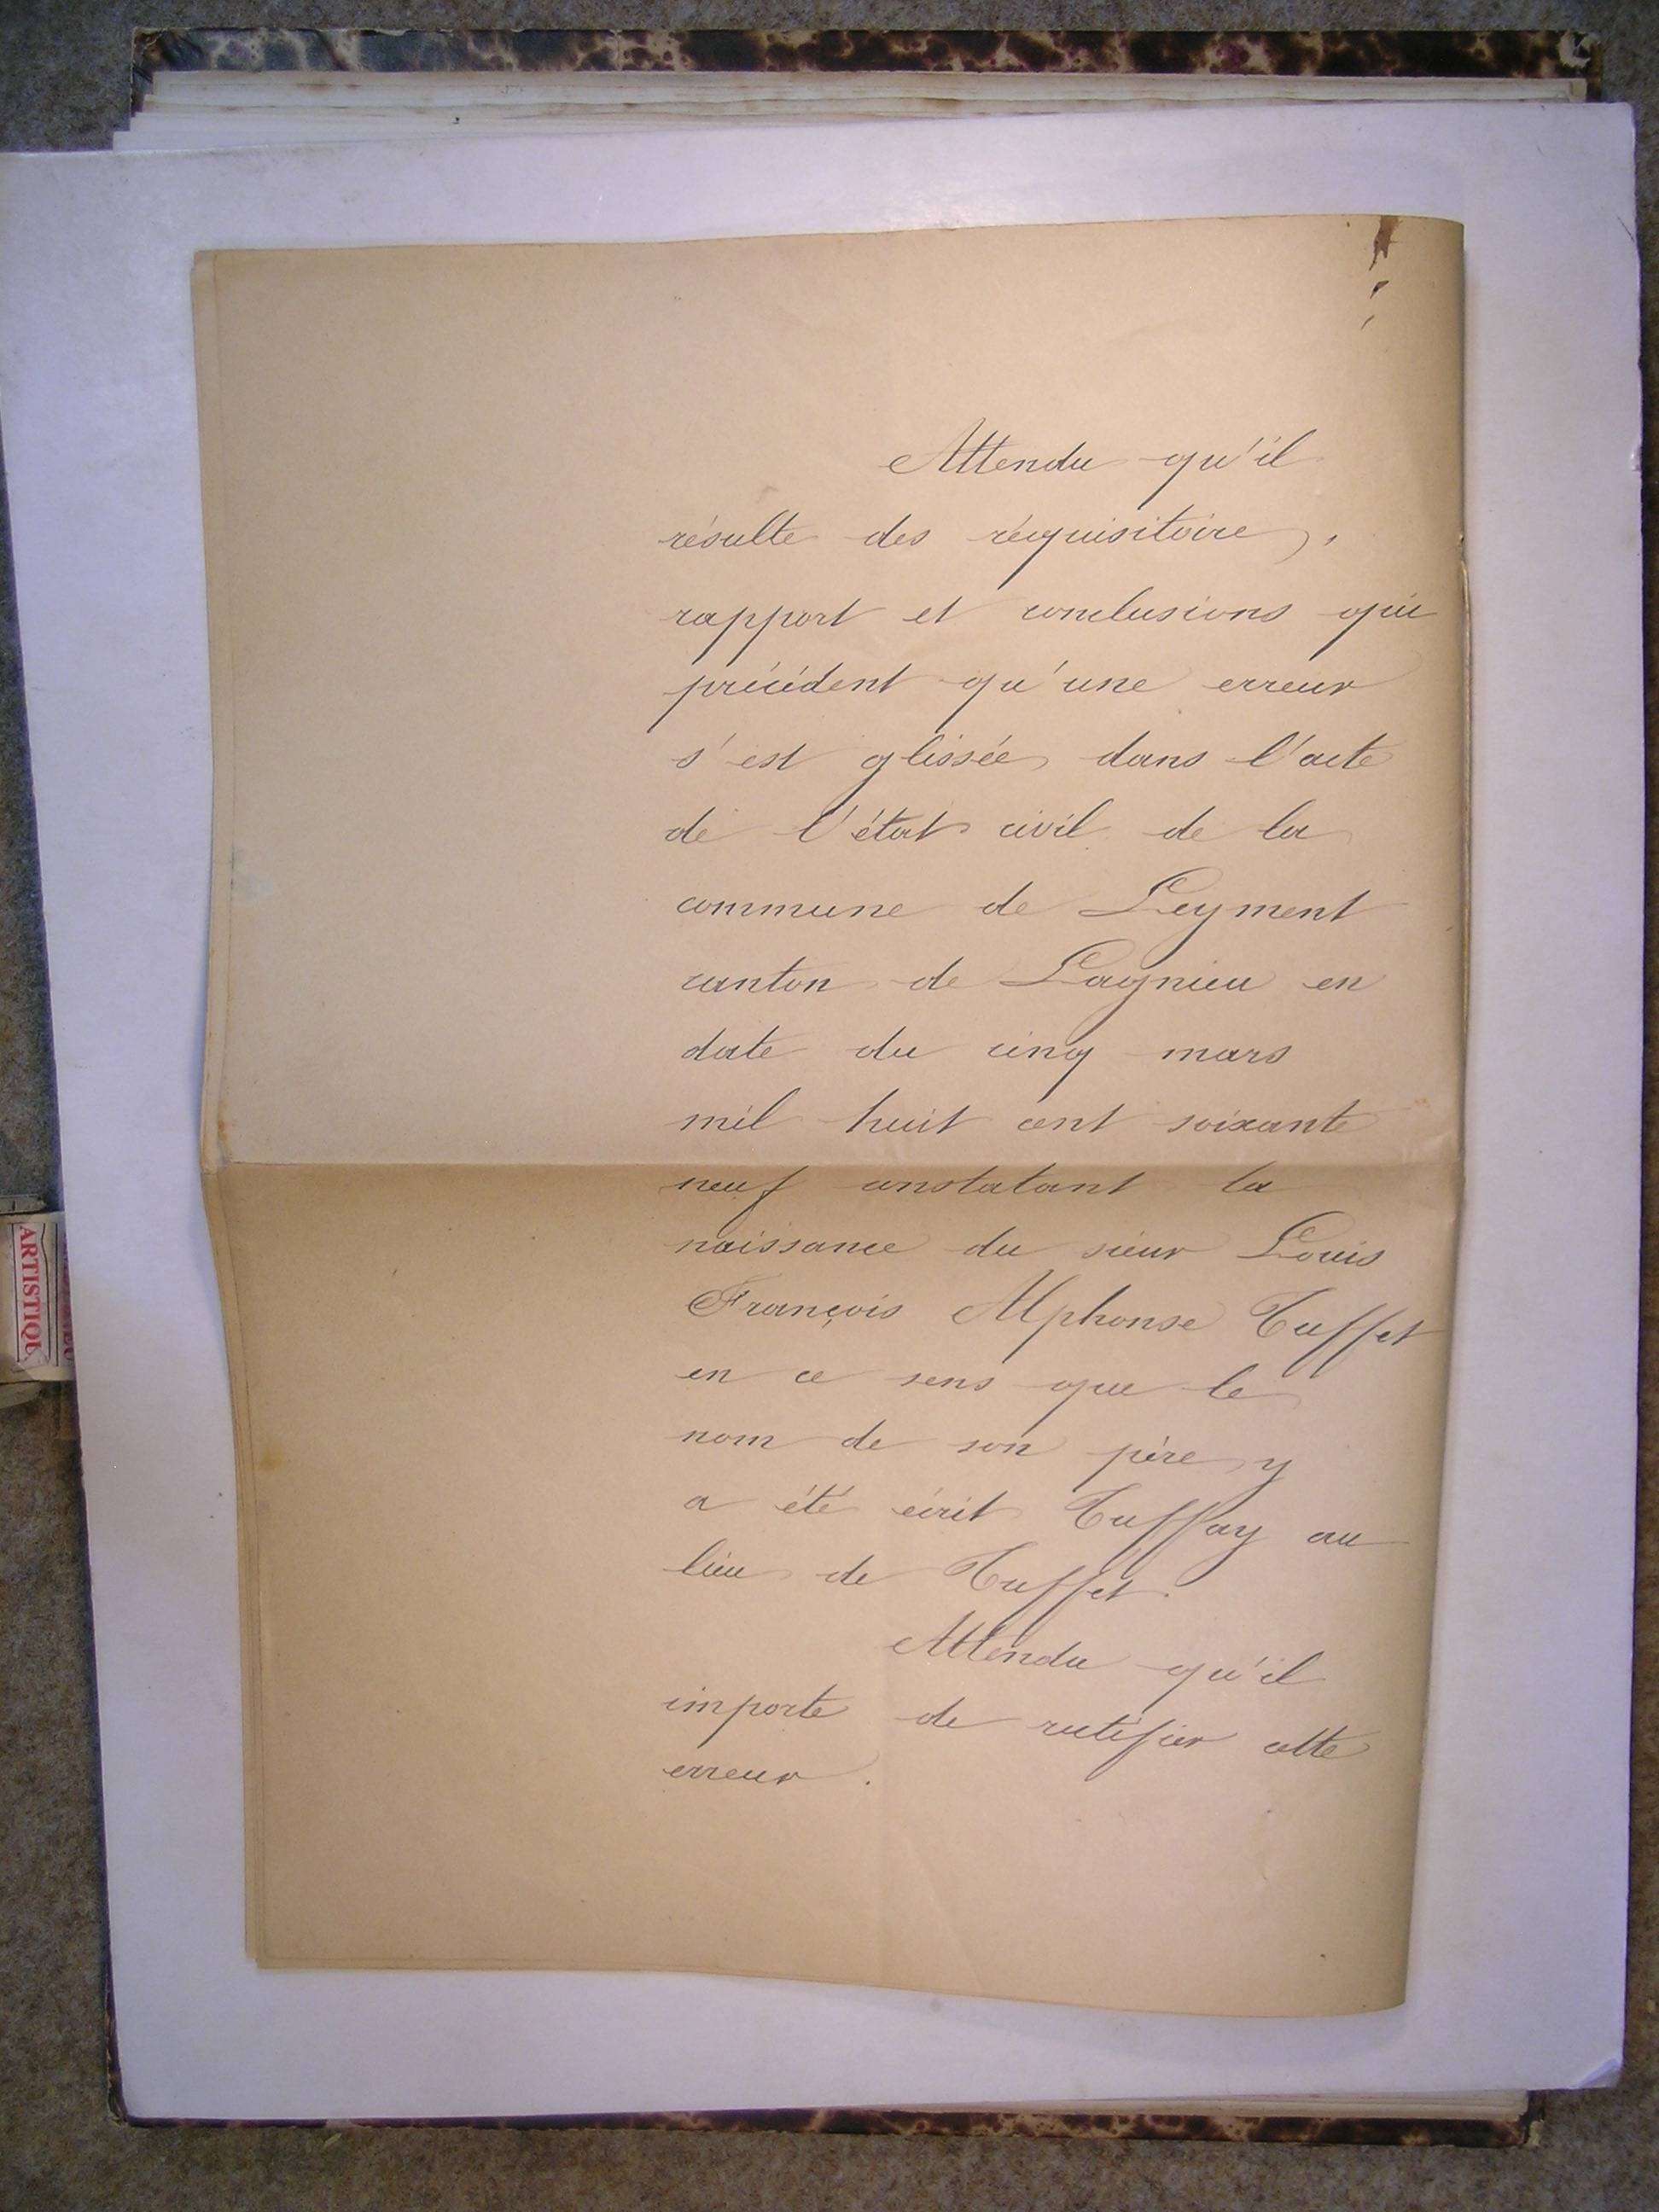 Attendu qu'il
résulte des réquisitoire,
rapport et conclusions qui
précédent qu'une erreur
s'est glissée dans l'acte
de l'état civil de la
commune de Leyment
canton de Lagnieu en
date du cinq mars
mil huit cent soixante
neuf constatant la
naissance du sieur Louis
François Alphonse Tuffet
en ce sens que le
nom de son père y
a été écrit Tuffay au
lieu de Tuffet.
Attendu qu'il
importe de rectifier cette
erreur.
ARTISTIQU